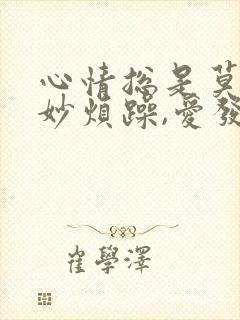 心情總是莫
妙煩躁,愛發
崔學澤